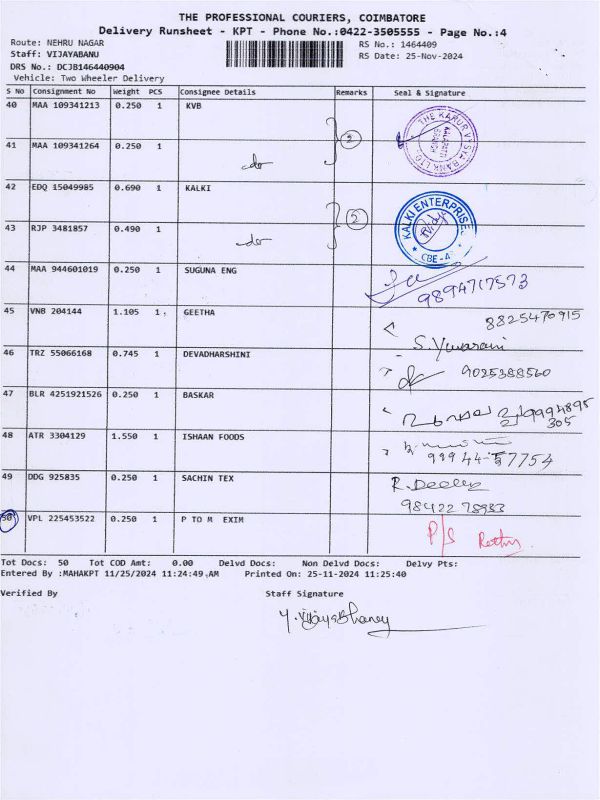 THE PROFESSIONAL COURIERS, COIMBATORE
Delivery Runsheet - KPT - Phone No.:0422-3505555 - Page No.:4
Route: NEHRU NAGAR RS No.: 1464409
Staff: VIJAYABANU RS Date: 25-Nov-2024
DRS No.: DCJB146440904
Vehicle: Two Wheeler Delivery
S No Consignment No Weight PCS Consignee Details Remarks Seal & Signature
40 MAA 109341213 0.250 1 KVB
2
THE KARUR VYSYA BANK LTD
41 MAA 109341264 0.250 1
do
42 EDQ 15049985 0.690 1 KALKI
KALKI ENTERPRISES
CBE-4
43 RJP 3481857 0.490 1
do
44 MAA 944601019 0.250 1 SUGUNA ENG
9894717573
45 VNB 204144 1.105 1 GEETHA
8825470915
S. Yuvarani
46 TRZ 55066168 0.745 1 DEVADHARSHINI
9025388560
47 BLR 4251921526 0.250 1 BASKAR
9994895
305
48 ATR 3304129 1.550 1 ISHAAN FOODS
99944-57754
49 DDG 925835 0.250 1 SACHIN TEX
98422 78983
50 VPL 225453522 0.250 1 P TO M EXIM
P/S
Tot Docs: 50 Tot COD Amt: 0.00 Delvd Docs: Non Delvd Docs: Delvy Pts:
Entered By :MAHAKPT 11/25/2024 11:24:49 AM Printed On: 25-11-2024 11:25:40
Verified By Staff Signature